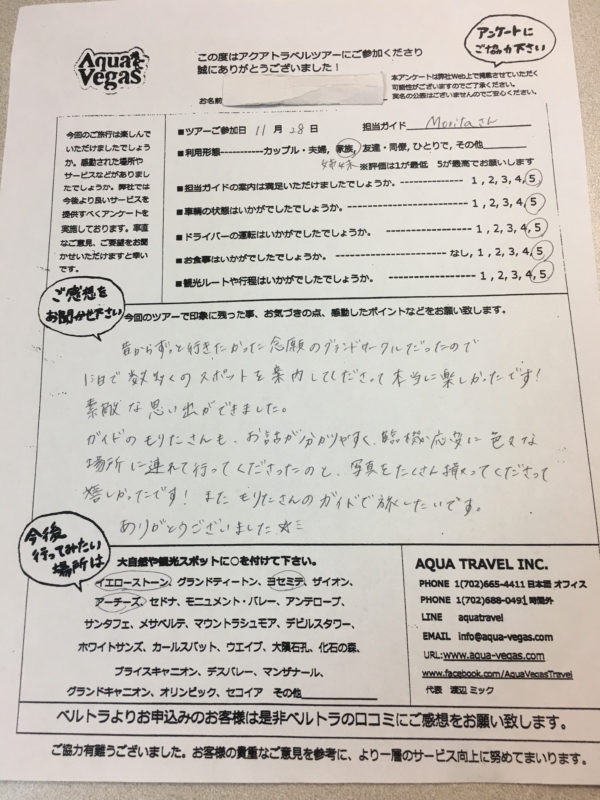 Aqua Vegas
この度はアクアトラベルツアーにご参加くださり
誠にありがとうございました！
アンケートに
ご協力下さい
本アンケートは弊社Web上で掲載させていただく
可能性がございますのでご了承ください。
実名の公表はございませんのでご安心ください。
お名前
今回のご旅行は楽しんで
いただけましたでしょう
か。感動された場所や
サービスなどがありまし
たでしょうか。弊社では
今後より良いサービスを
提供すべくアンケートを
実施しております。率直
なご意見、ご要望をお聞
かせいただけますと幸い
です。
■ツアーご参加日 11月28日 担当ガイド Moritaさん
■利用形態------------カップル・夫婦, 家族, 友達・同僚, ひとりで, その他
姉妹 ※評価は1が最低 5が最高でお願いします
■担当ガイドの案内は満足いただけましたでしょうか。 ---------------- 1, 2, 3, 4, 5,
■車輌の状態はいかがでしたでしょうか。 ---------------- 1, 2, 3, 4, 5,
■ドライバーの運転はいかがでしたでしょうか。 ---------------- 1, 2, 3, 4, 5,
■お食事はいかがでしたでしょうか。 ---------------- なし, 1, 2, 3, 4, 5
■観光ルートや行程はいかがでしたでしょうか。 ---------------- 1, 2, 3, 4, 5
ご感想を
お聞かせ下さい
今回のツアーで印象に残った事、お気づきの点、感動したポイントなどをお願い致します。
昔からずっと行きたかった念願のグランドサークルだったので
1日で数多くのスポットを案内してくださって本当に楽しかったです！
素敵な思い出ができました。
ガイドのもりたさんも、お話が分かりやすく、臨機応変に色々な
場所に連れて行ってくださったのと、写真をたくさん撮ってくださって
嬉しかったです！またもりたさんのガイドで旅したいです。
ありがとうございました☆ミ
今後
行ってみたい
場所は
大自然や観光スポットに○を付けて下さい。
イエローストーン、グランドティートン、ヨセミテ、ザイオン、
アーチーズ、セドナ、モニュメント・バレー、アンテロープ、
サンタフェ、メサベルデ、マウントラシュモア、デビルスタワー、
ホワイトサンズ、カールスバット、ウエイブ、大隕石孔、化石の森、
ブライスキャニオン、デスバレー、マンザナール、
グランドキャニオン、オリンピック、セコイア その他
AQUA TRAVEL INC.
PHONE 1(702)665-4411 日本語 オフィス
PHONE 1(702)688-0491 時間外
LINE aquatravel
EMAIL info@aqua-vegas.com
URL:www.aqua-vegas.com
www.facebook.com/AquaVegasTravel
代表 渡辺 ミック
ベルトラよりお申込みのお客様は是非ベルトラの口コミにご感想をお願い致します。
ご協力有難うございました。お客様の貴重なご意見を参考に、より一層のサービス向上に努めてまいります。